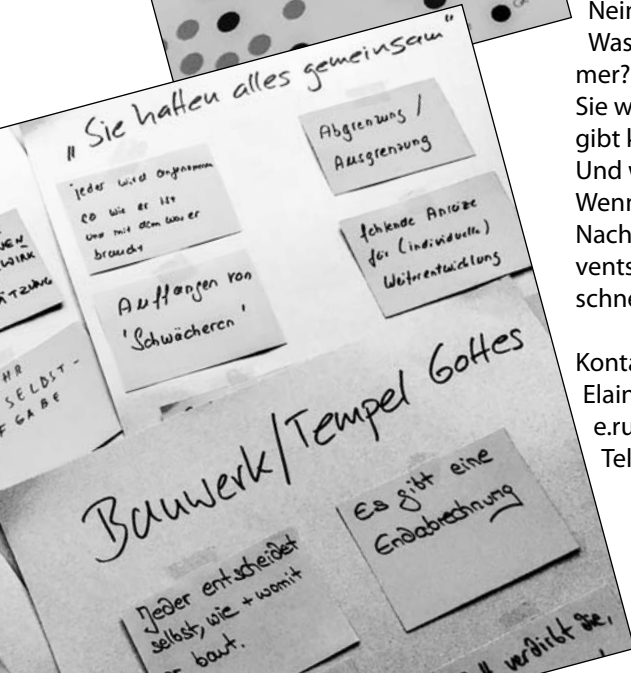 „Sie hatten alles gemeinsam“
jeder wird angenommen
so wie er ist
und mit dem was er
braucht
Abgrenzung /
Ausgrenzung
Auffangen von
'Schwächeren'
fehlende Anreize
für (individuelle)
Weiterentwicklung
SELBST-
GABE
Bauwerk/Tempel Gottes
Jeder entscheidet
selbst, wie + womit
baut.
Es gibt eine
Endabrechnung
verdirbt
Nein
Was
mer?
Sie w
gibt k
Und v
Wenn
Nach
vents
schne
Konta
Elain
e.ru
Tel